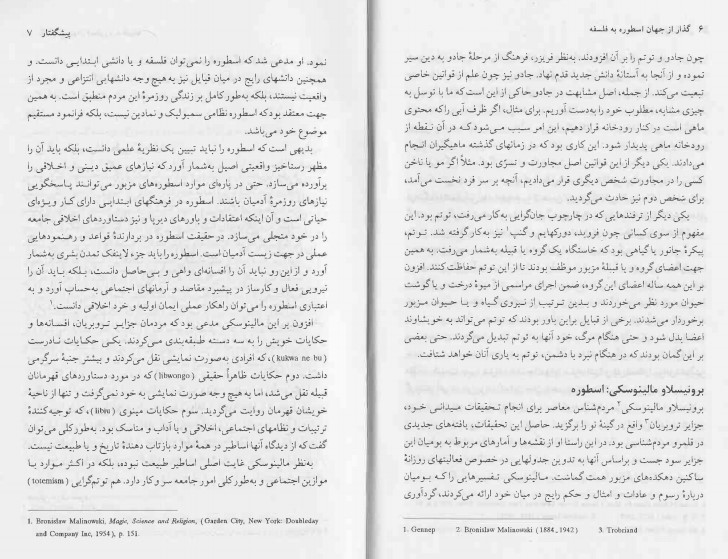 ۶ گذار از جهان اسطوره به فلسفه
چون جادو و توتم را بر آن افزودند. به‌نظر فریزر، فرهنگ از مرحلهٔ جادو به دین سیر
نموده و از آنجا به آستانهٔ دانش جدید قدم نهاد. جادو نیز چون علم از قوانین خاصی
تبعیت می‌کند. از جمله، اصل مشابهت در جادو حاکی از این است که ما با توسل به
چیزی مشابه، مطلوب خود را به‌دست آوریم. برای مثال، اگر ظرف آبی را که محتوی
ماهی است در کنار رودخانه قرار دهیم، این امر سبب می‌شود که در آن نقطه از
رودخانه ماهی پدیدار شود. این کاری بود که در زمانهای گذشته ماهیگیران انجام
می‌دادند. یکی دیگر از این قوانین اصل مجاورت و تسرّی بود. مثلاً اگر مو یا ناخن
کسی را در مجاورت شخص دیگری قرار می‌دادیم، آنچه بر سر فرد نخست می‌آمد،
برای شخص دوم نیز حادث می‌گردید.
یکی دیگر از ترفندهایی که در چارچوب جان‌گرایی به‌کار می‌رفت، توتم بود. این
مفهوم از سوی کسانی چون فروید، دورکهایم و گنپ۱ نیز به‌کار گرفته شد. توتم،
پیکرهٔ جانور یا گیاهی بود که خاستگاه یک گروه یا قبیله به‌شمار می‌رفت. به همین
جهت اعضای گروه و یا قبیلهٔ مزبور موظف بودند تا از این توتم حفاظت کنند. افزون
بر این همه ساله اعضای این گروه، ضمن اجرای مراسمی از میوهٔ درخت و یا گوشت
حیوان مورد نظر می‌خوردند و بدین ترتیب از نیروی گیاه و یا حیوان مزبور
برخوردار می‌شدند. برخی از قبایل بر این باور بودند که توتم می‌تواند به خویشاوند
اعضا بدل شود و حتی هنگام مرگ، خود آنها به توتم تبدیل می‌گردند. حتی بعضی
بر این گمان بودند که در هنگام نبرد با دشمن، توتم به یاری آنان خواهد شتافت.
برونیسلاو مالینوسکی: اسطوره
برونیسلاو مالینوسکی۲ مردم‌شناس معاصر برای انجام تحقیقات میدانی خود،
جزایر تروبریان۳ واقع در گینهٔ نو را برگزید. حاصل این تحقیقات، یافته‌های جدیدی
در قلمرو مردم‌شناسی بود. در این راستا او از نقشه‌ها و آمارهای مربوط به بومیان این
جزایر سود جست و براساس آنها به تدوین جدولهایی در خصوص فعالیتهای روزانهٔ
ساکنین دهکده‌های مزبور همت گماشت. مالینوسکی تفسیرهایی را که بومیان
دربارهٔ رسوم و عادات و امثال و حکم رایج در میان خود ارائه می‌کردند، گردآوری
1. Gennep 2. Bronislaw Malinowski (1884_1942) 3. Trobriand
پیشگفتار ۷
نمود. او مدعی شد که اسطوره را نمی‌توان فلسفه و یا دانشی ابتدایی دانست. و
همچنین دانشهای رایج در میان قبایل نیز به هیچ وجه دانشهایی انتزاعی و مجرد از
واقعیت نیستند، بلکه به‌طور کامل بر زندگی روزمرهٔ این مردم منطبق است. به همین
جهت معتقد بود که اسطوره نظامی سمبولیک و نمادین نیست، بلکه فرانمود مستقیم
موضوع خود می‌باشد.
بدیهی است که اسطوره را نباید تبیین یک نظریهٔ علمی دانست، بلکه باید آن را
مظهر رستاخیز واقعیتی اصیل به‌شمار آورد که نیازهای عمیق دینی و اخلاقی را
برآورده می‌سازد. حتی در پاره‌ای موارد اسطوره‌های مزبور می‌توانند پاسخگویی
نیازهای روزمرهٔ آدمیان باشند. اسطوره در فرهنگهای ابتدایی دارای کار ویژه‌ای
حیاتی است و آن اینکه اعتقادات و باورهای دیرپا و نیز دستاوردهای اخلاقی جامعه
را در خود متجلی می‌سازد. در حقیقت اسطوره در بردارندهٔ قواعد و رهنمودهایی
عملی در جهت زیست آدمیان است. اسطوره را باید جزء لاینفک تمدن بشری به‌شمار
آورد و از این رو نباید آن را افسانه‌ای واهی و بی‌حاصل دانست، بلکه باید آن را
نیرویی فعال و کارساز در پیشبرد مقاصد و آرمانهای اجتماعی به‌حساب آورد و به
اعتباری اسطوره را می‌توان راهکار عملی ایمان اولیه و خرد اخلاقی دانست.۱
افزون بر این مالینوسکی مدعی بود که مردمان جزایر تروبریان، افسانه‌ها و
حکایات خویش را به سه دسته طبقه‌بندی می‌کردند. یکی حکایات نادرست
(kukwa ne bu) که افرادی به‌صورت نمایشی نقل می‌کردند و بیشتر جنبهٔ سرگرمی
داشت. دوم حکایات ظاهراً حقیقی (libwongo) که در مورد دستاوردهای قهرمانان
قبیله نقل می‌شد، اما به هیچ وجه صورت نمایشی به خود نمی‌گرفت و تنها از ناحیهٔ
خویشان قهرمان روایت می‌گردید. سوم حکایات مینوی (libiu) که توجیه‌کنندهٔ
ترتیبات و نظامهای اجتماعی، اخلاقی و یا آداب و مناسک بود. به‌طور کلی می‌توان
گفت که از دیدگاه آنها اساطیر در همهٔ موارد بازتاب دهندهٔ تاریخ و یا طبیعت نیست.
به‌نظر مالینوسکی غایت اصلی اساطیر طبیعت نبوده، بلکه در اکثر موارد با
موازین اجتماعی و به‌طور کلی امور جامعه سر و کار دارد. هم توتم‌گرایی (totemism)
1. Bronislaw Malinowski, Magic, Science and Religion, (Garden City, New York: Doubleday
and Company Inc, 1954), p. 151.